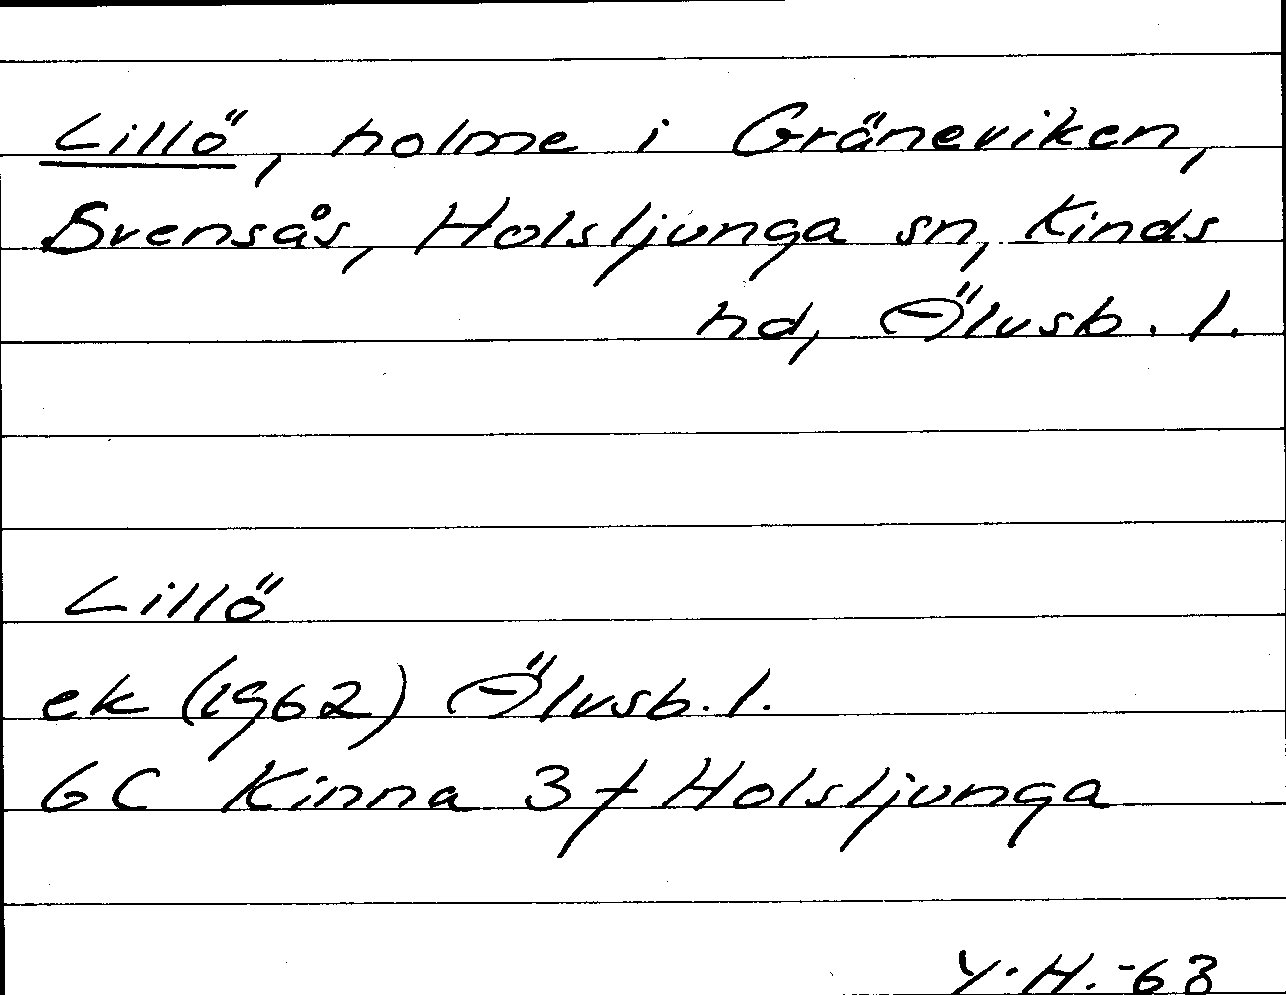 Lillö, holme i Gräneviken,
Svensås, Holsljunga sn, Kinds
hd, Älvsb. l.
Lillö
ek (1962) Älvsb. l.
6C Kinna 3f Holsljunga
Y.H.-63